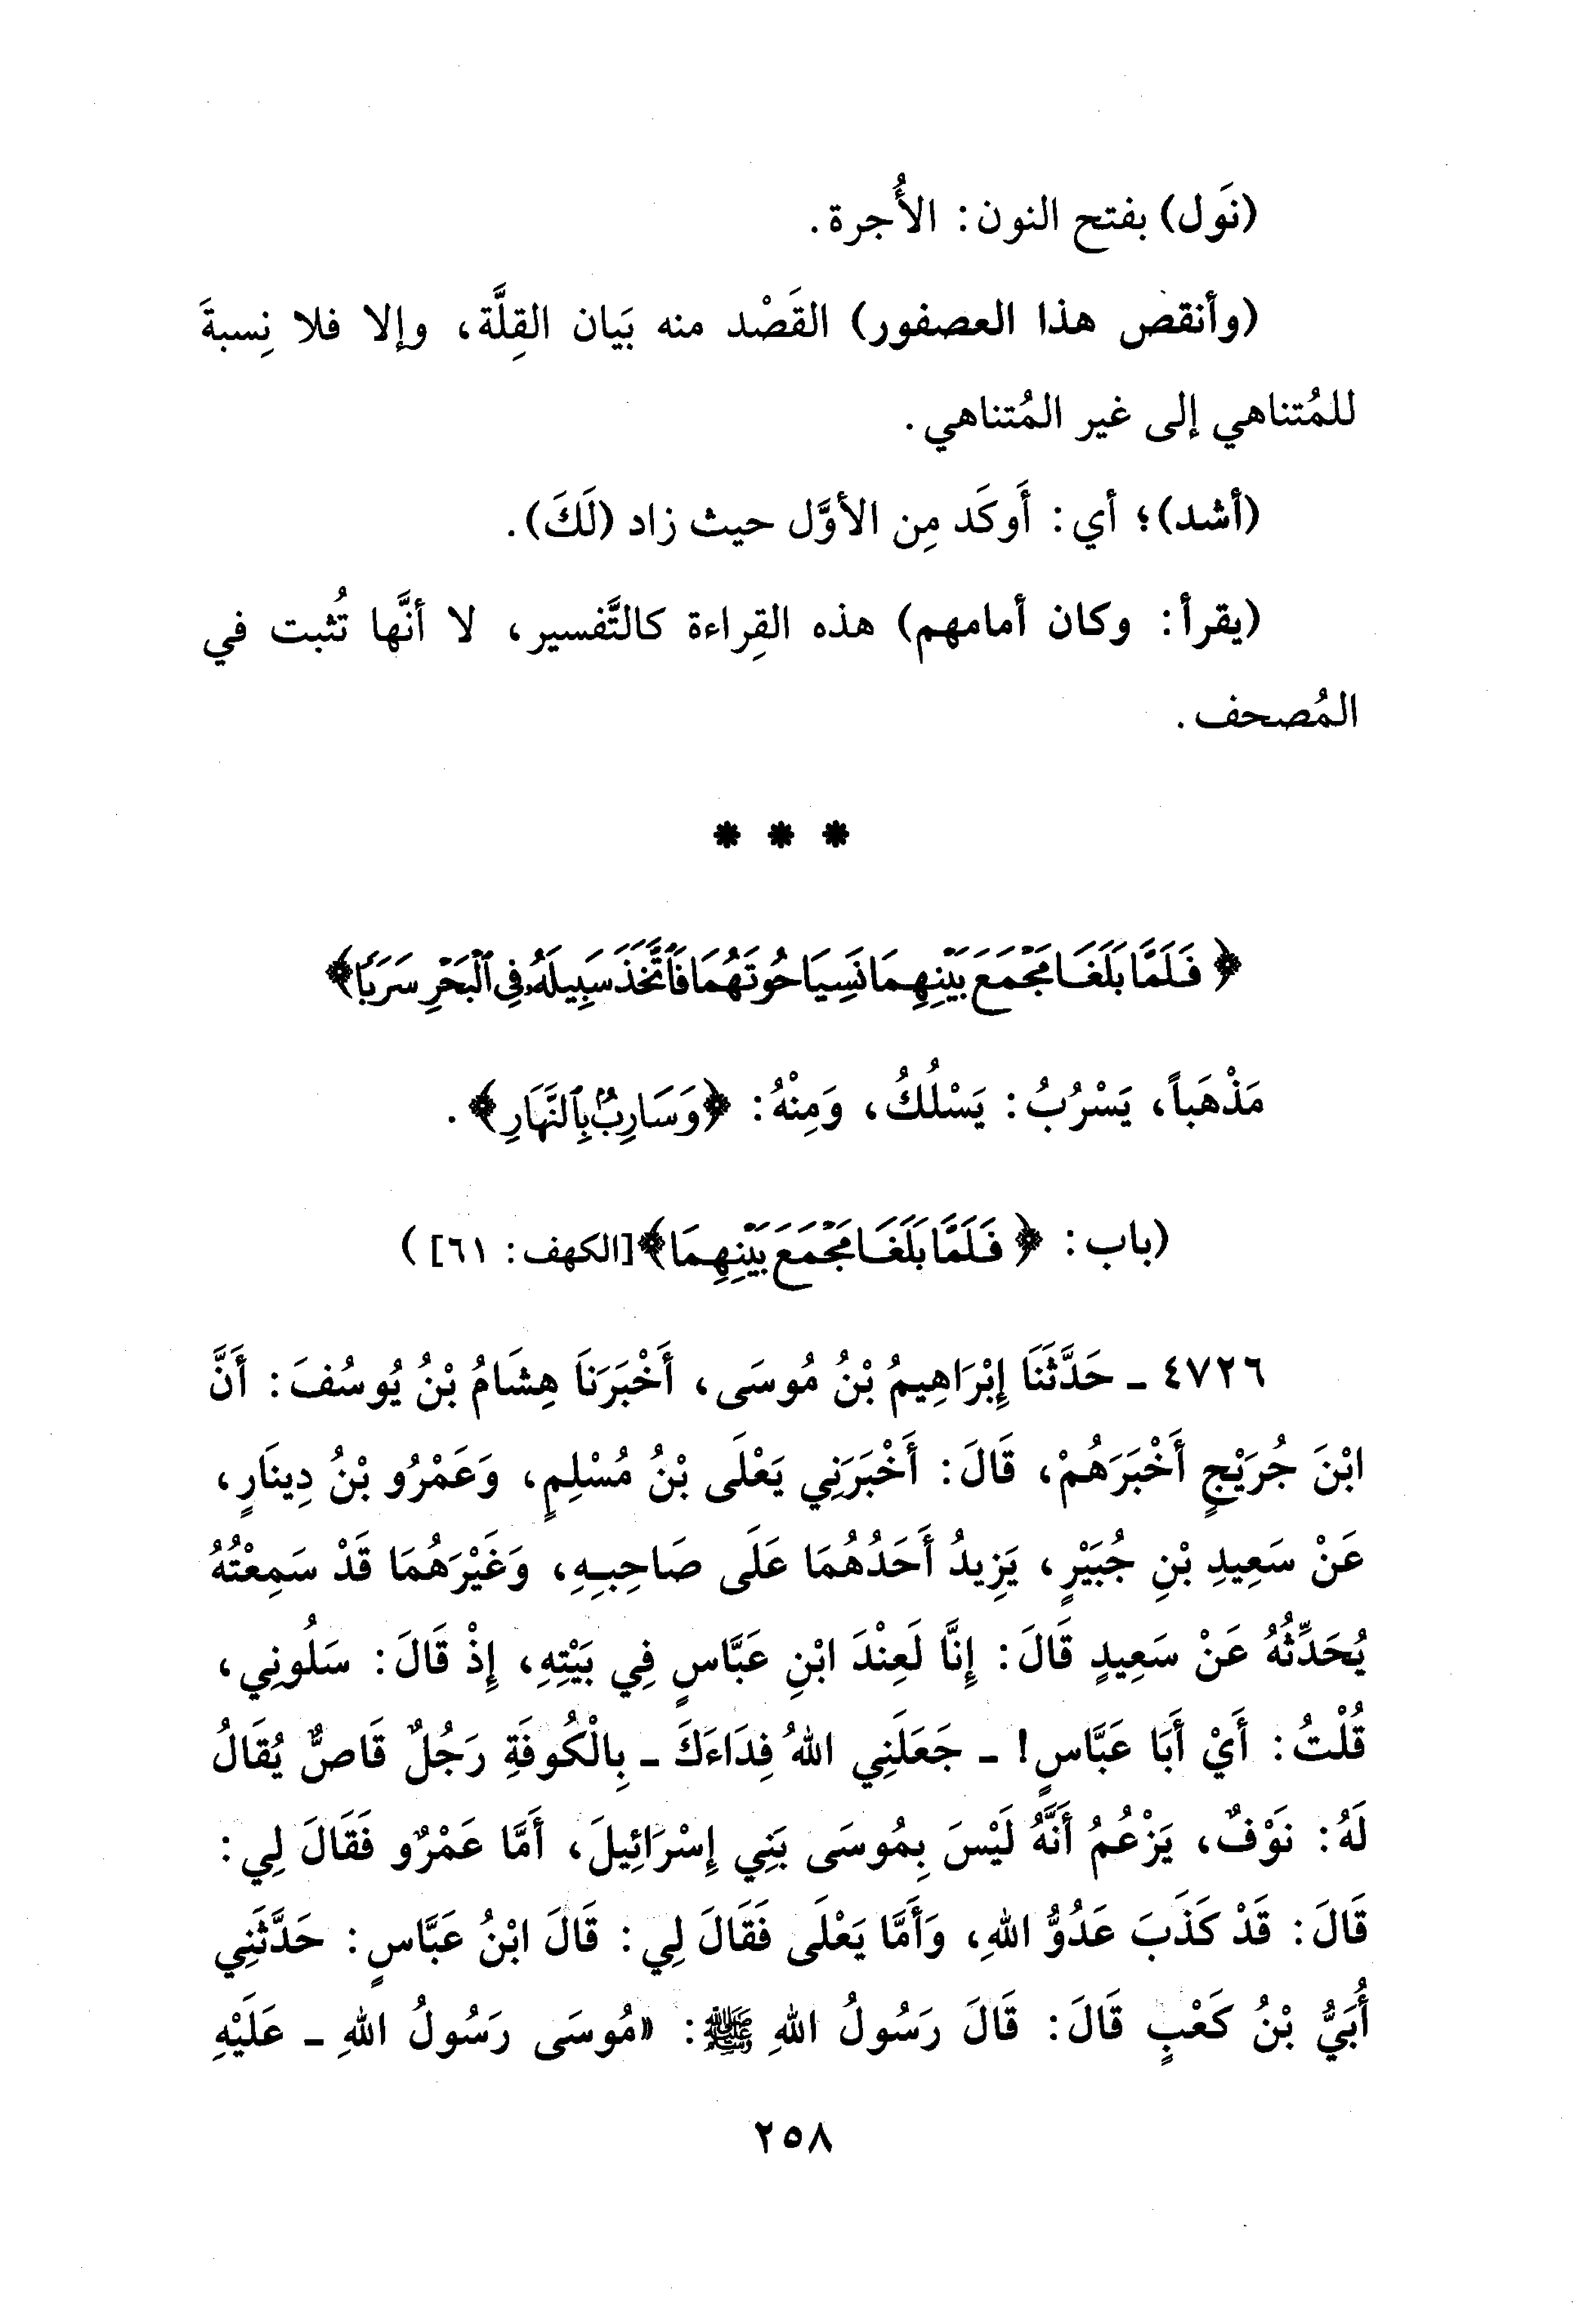 (نَول) بفتح النون: الأُجرة.
(وأنقص هذا العصفور) القَصْد منه بَيان القِلَّة، وإلا فلا نِسبةَ
للمُتناهي إلى غير المُتناهي.
(أشد)؛ أي: أَوكَد مِن الأوَّل حيث زاد (لَكَ).
(يقرأ: وكان أمامهم) هذه القِراءة كالتَّفسير، لا أنَّها تُثبت في
المُصحف.
* * *
﴿فَلَمَّا بَلَغَا مَجْمَعَ بَيْنِهِمَا نَسِيَا حُوتَهُمَا فَٱتَّخَذَ سَبِيلَهُۥ فِى ٱلْبَحْرِ سَرَبًا﴾
مَذْهَباً، يَسْرُبُ: يَسْلُكُ، وَمِنْهُ: ﴿وَسَارِبٌۢ بِٱلنَّهَارِ﴾.
(باب: ﴿فَلَمَّا بَلَغَا مَجْمَعَ بَيْنِهِمَا﴾[الكهف: ٦١])
٤٧٢٦ ـ حَدَّثَنَا إِبْرَاهِيمُ بْنُ مُوسَى، أَخْبَرَنَا هِشَامُ بْنُ يُوسُفَ: أَنَّ
ابْنَ جُرَيْجٍ أَخْبَرَهُمْ، قَالَ: أَخْبَرَنِي يَعْلَى بْنُ مُسْلِمٍ، وَعَمْرُو بْنُ دِينَارٍ،
عَنْ سَعِيدِ بْنِ جُبَيْرٍ، يَزِيدُ أَحَدُهُمَا عَلَى صَاحِبِهِ، وَغَيْرَهُمَا قَدْ سَمِعْتُهُ
يُحَدِّثُهُ عَنْ سَعِيدٍ قَالَ: إِنَّا لَعِنْدَ ابْنِ عَبَّاسٍ فِي بَيْتِهِ، إِذْ قَالَ: سَلُونِي،
قُلْتُ: أَيْ أَبَا عَبَّاسٍ! ـ جَعَلَنِي اللهُ فِدَاءَكَ ـ بِالْكُوفَةِ رَجُلٌ قَاصٌّ يُقَالُ
لَهُ: نَوْفٌ، يَزْعُمُ أَنَّهُ لَيْسَ بِمُوسَى بَنِي إِسْرَائِيلَ، أَمَّا عَمْرٌو فَقَالَ لِي:
قَالَ: قَدْ كَذَبَ عَدُوُّ اللهِ، وَأَمَّا يَعْلَى فَقَالَ لِي: قَالَ ابْنُ عَبَّاسٍ: حَدَّثَنِي
أُبَيُّ بْنُ كَعْبٍ قَالَ: قَالَ رَسُولُ اللهِ ﷺ: «مُوسَى رَسُولُ اللهِ ـ عَلَيْهِ
٢٥٨